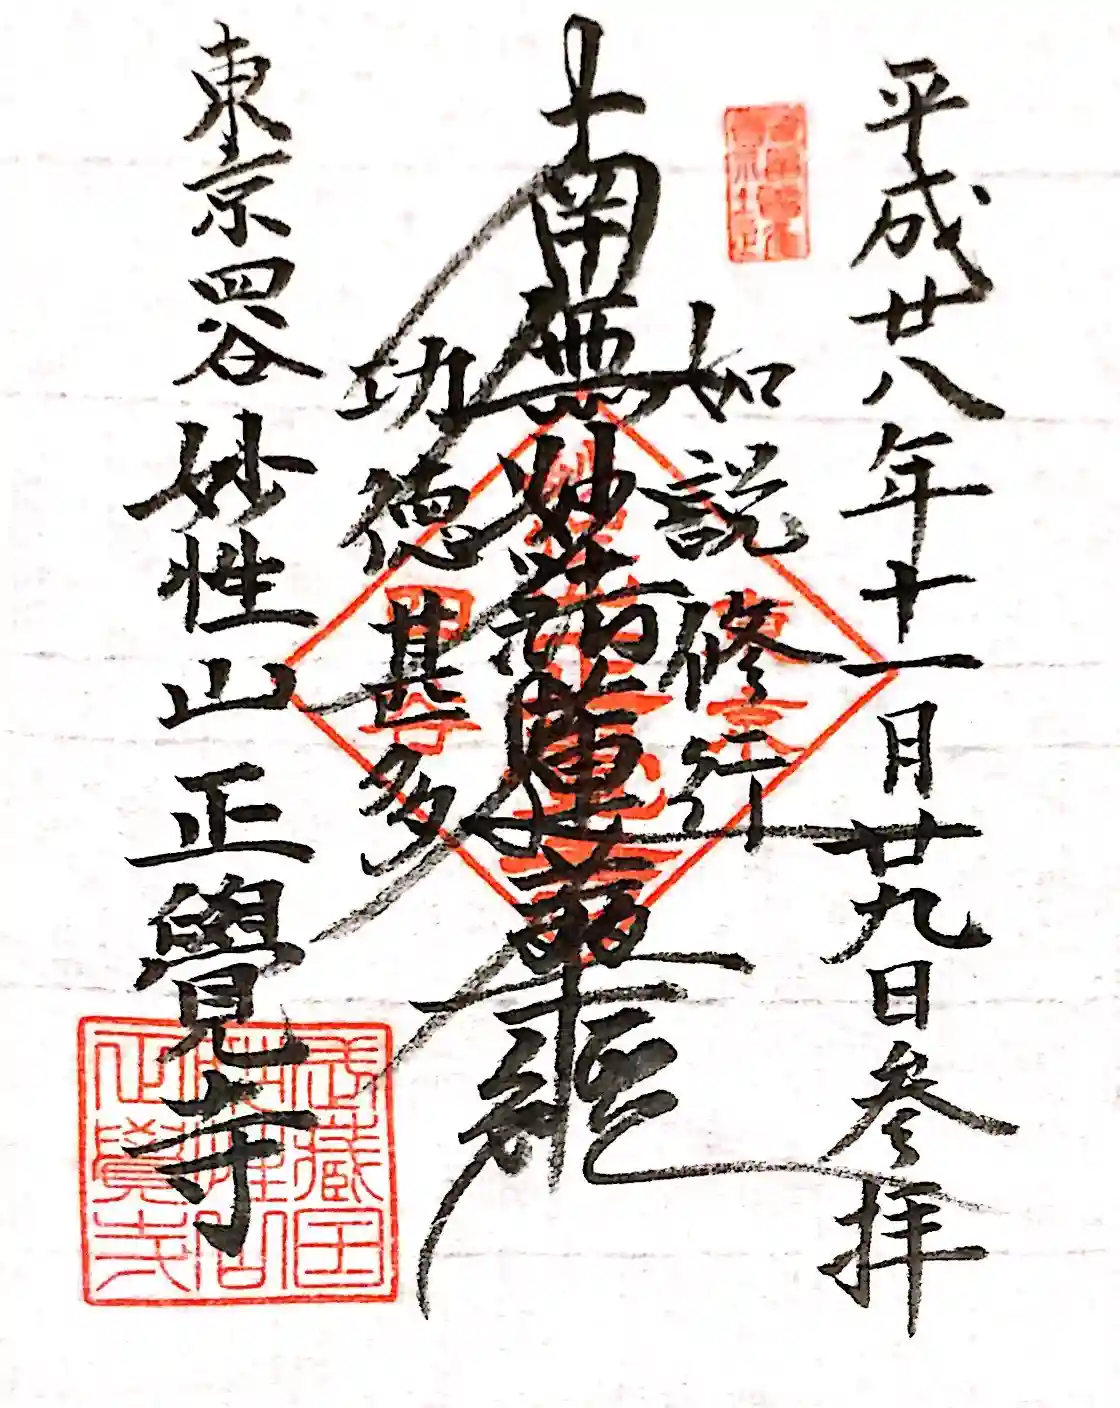 平成廿八年十一月廿九日参拝
如説修行
南無妙法蓮華経
功徳甚多
東京四谷妙性山正覺寺
東京
四谷
武蔵国
妙性山
正覺寺